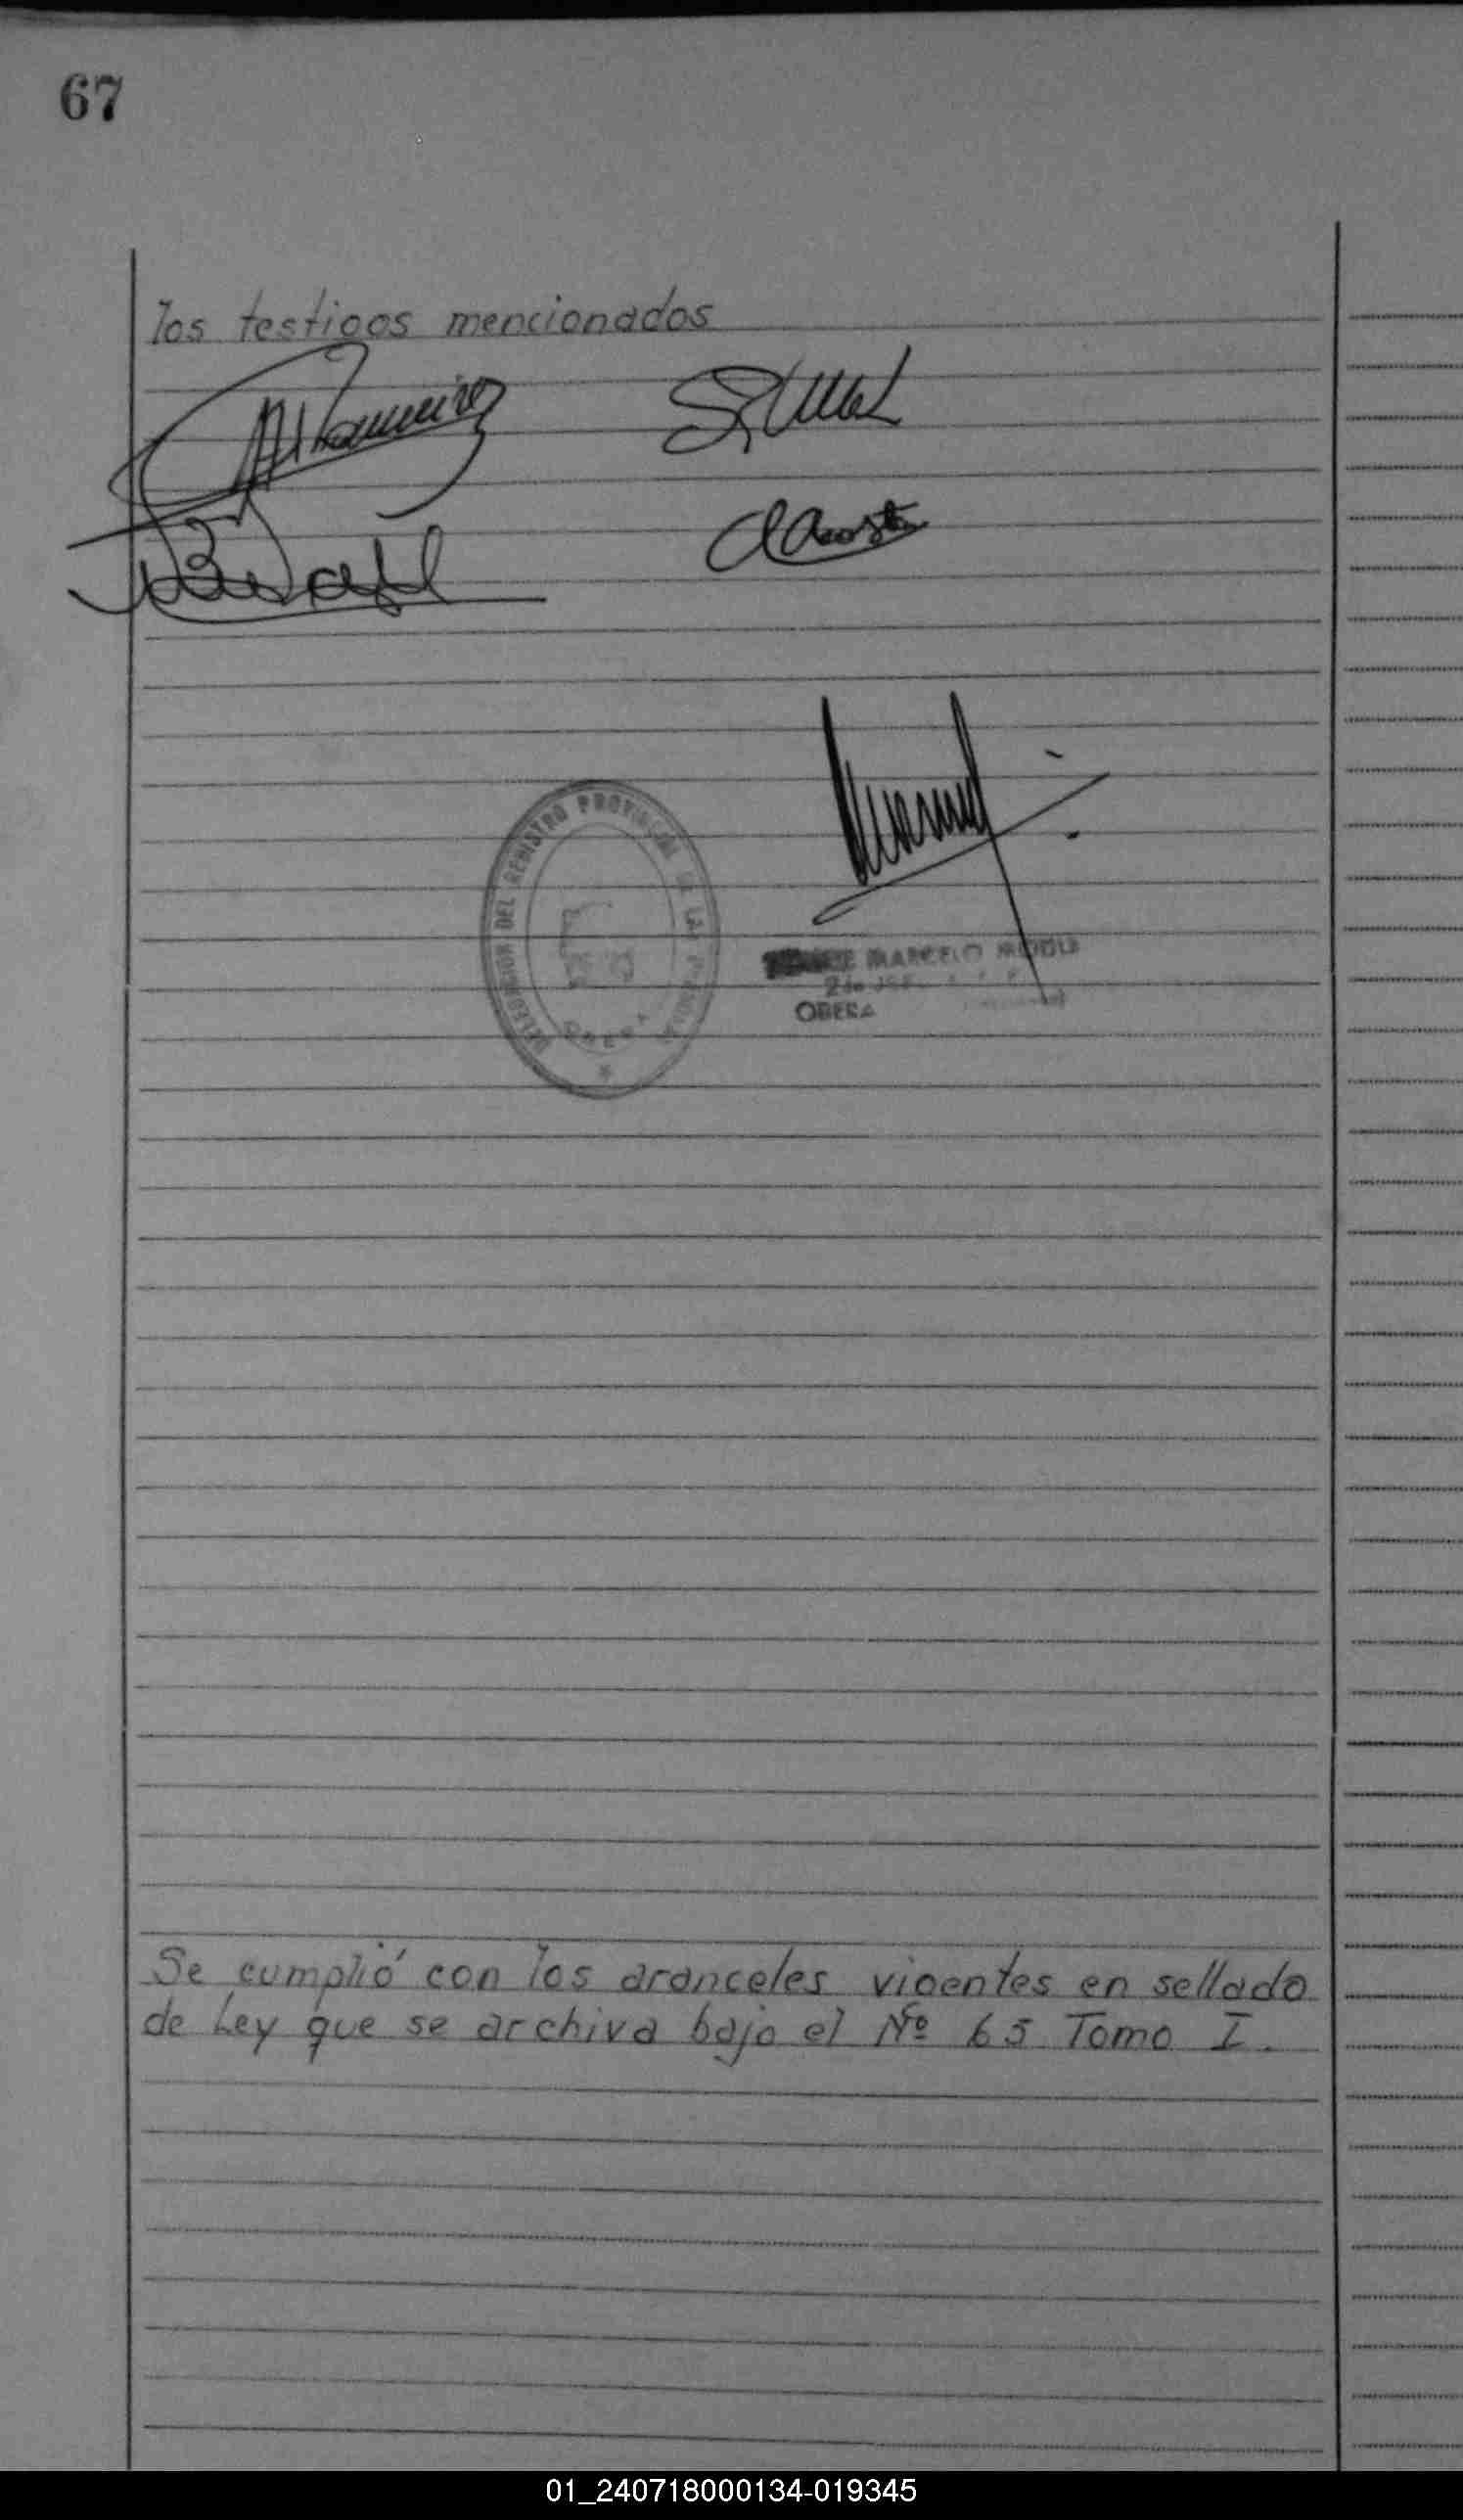 67
los testigos mencionados
Acosta
DELEGACION DEL REGISTRO PROVINCIAL DE LAS PERSONAS
OBERA
MARCELO
2do JEFE
OBERA
Se cumplió con los aranceles vigentes en sellado
de Ley que se archiva bajo el Nº 65 Tomo I.
01_240718000134-019345